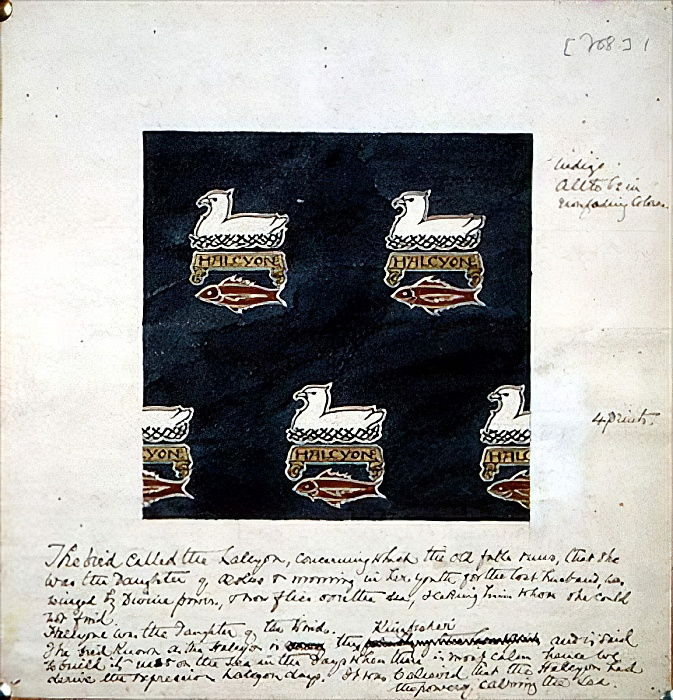 [708] 1
Indigo.
All to be in
nonfading Colores.
HALCYONE HALCYONE
4 prints.
YONE HALCYONE HALC
The bird called the halcyon, concerning which the old folk tale runs, that she
was the Daughter of Aeolus & mourning in her youth for the lost husband, was
winged by Divine power, & now flies over the sea, seeking him whom she could
not find.
Halcyone was the Daughter of the Winds.
The bird known as the Halcyon is the Kingfisher and is said
to build its nest on the sea in the Days when there is most calm hence we
derive the expression halcyon days. It was believed that the Halcyon had
the power of calming the sea.